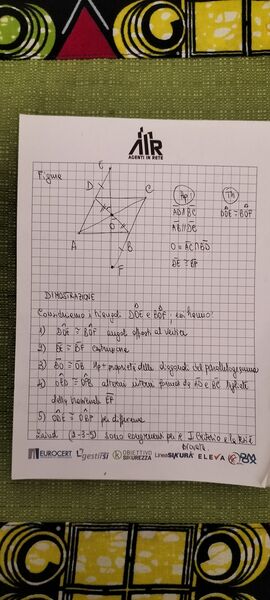 AIR
AGENTI IN RETE
Figura
E
D
C
O
A
B
F
Hp
AD//BC
AB//DC
O = AC ∩ BD
Th
DÔE ≅ BÔF
DIMOSTRAZIONE
Consideriamo i triangoli DÔE e BÔF; essi hanno:
1) DÔE ≅ BÔF angoli opposti al vertice
2) costruzione
3) BO ≅ OD Hp + proprietà delle diagonali del parallelogramma
4) alterni interni formati da AD e BC tagliate
della trasversale EF
5) per differenza
(2-3-5) sono congruenti per il I Criterio e la tesi è
provata
EUROCERT gestit OBIETTIVO SICUREZZA LineaSIKURA ELEVA